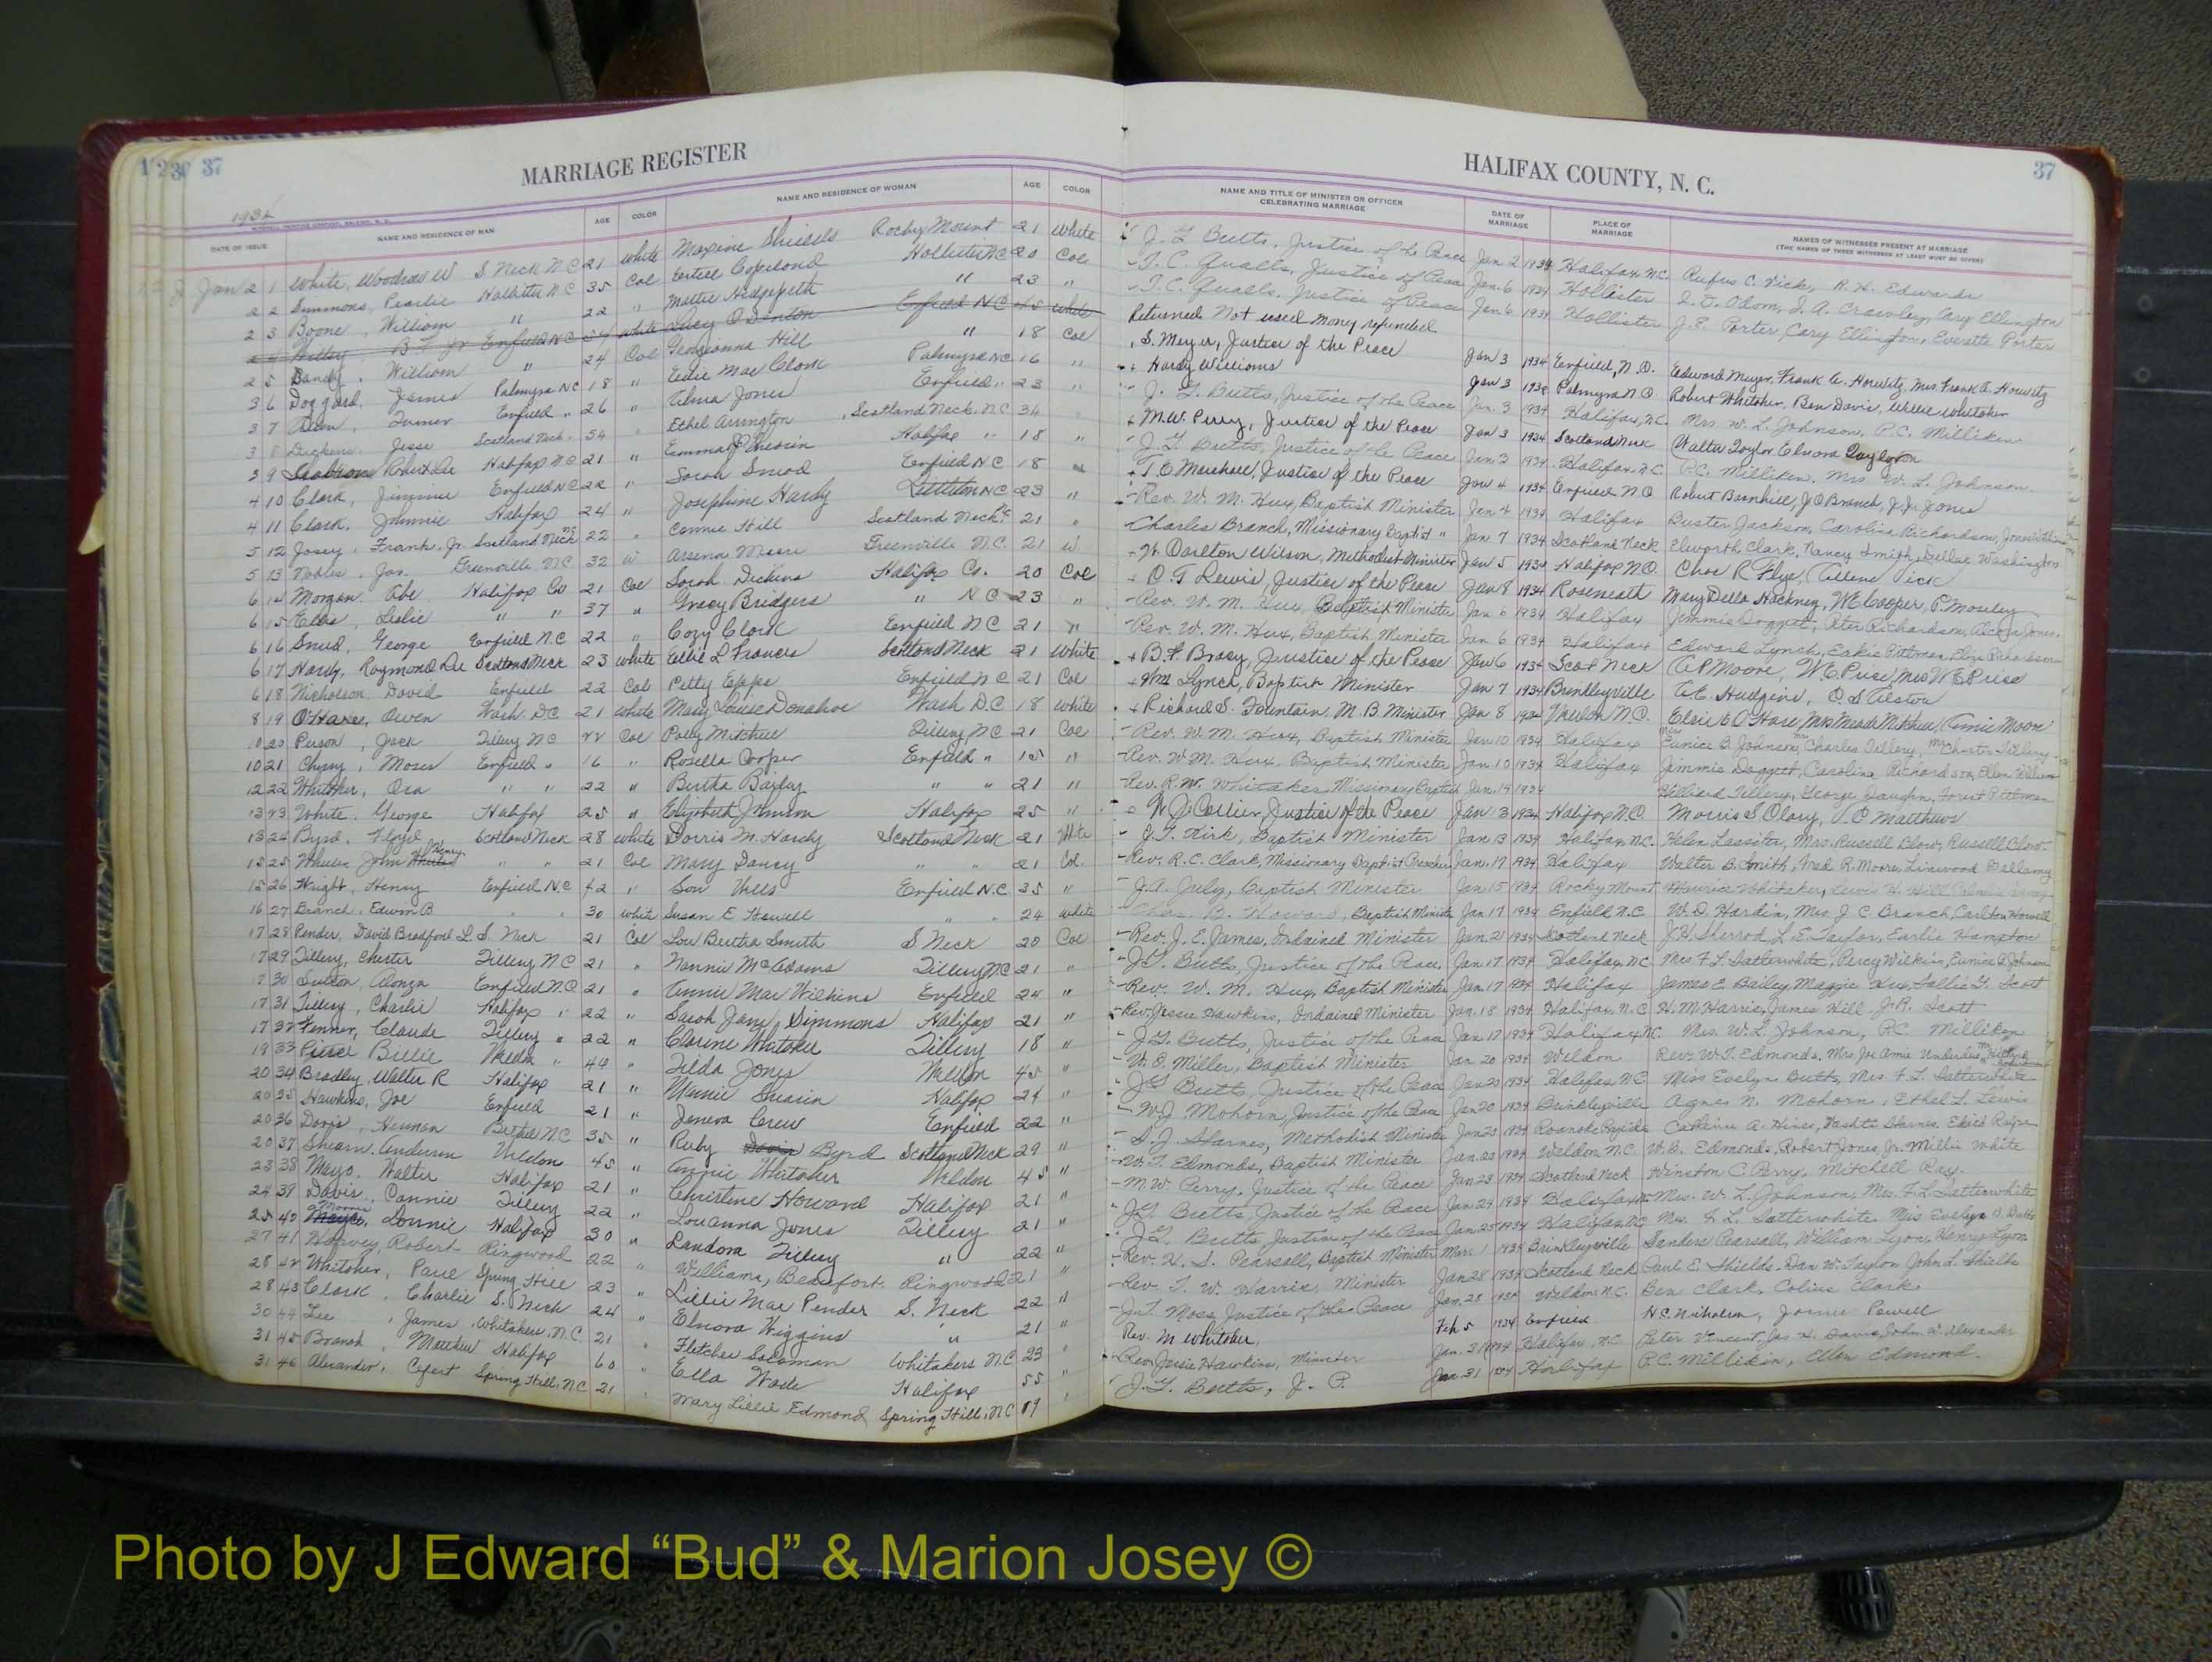 37
MARRIAGE REGISTER
HALIFAX COUNTY, N. C.
37
1934
DATE OF ISSUE NAME AND RESIDENCE OF MAN AGE COLOR NAME AND RESIDENCE OF WOMAN AGE COLOR
NAME AND TITLE OF MINISTER OR OFFICER CELEBRATING MARRIAGE DATE OF MARRIAGE PLACE OF MARRIAGE NAMES OF WITNESSES PRESENT AT MARRIAGE
(THE NAMES OF THREE WITNESSES AT LEAST MUST BE GIVEN)
Jan 2 1 White, Woodrow W S. Neck N C 21 white Maxine Shields Rocky Mount 21 White J. G. Butts, Justice of the Peace Jan. 2 1934 Halifax, N.C. Rufus C. Vick, R. H. Edwards
2 2 Simmons, Pearlie Hollister N C 35 Col Copeland Hollister NC 20 Col T. C. Qualls, Justice of Peace Jan. 6 1934 Hollister Odom, J. A. Crawley, Cary Ellington
2 3 Boone, William " 22 " Mattie Hedgepeth " 23 " T. C. Qualls, Justice of Peace Jan 6 1934 Hollister J. E. Porter, Cary Ellington, Everette Porter
B F Jr Enfield NC 54 white Lucy Denton Enfield NC 45 white Returned Not used money refunded
2 5 William " 24 Col Georgianna Hill " 18 Col S. Meyer, Justice of the Peace Jan 3 1934 Enfield, N.C. Edward Meyer, Frank A. Horwitz, Mrs. Frank A. Horwitz
3 6 Doggard, James Palmyra NC 18 " Mae Clark Palmyra NC 16 " Hardy Williams Jan 3 1934 Palmyra N C Robert Whitaker, Ben Davis, Willie Whitaker
3 7 Turner Enfield " 26 " Alma Jones Enfield " 23 " J. G. Butts, Justice of the Peace Jan. 3 1934 Halifax, N.C. Mrs. W. L. Johnson, P.C. Milliken
3 8 Dickens, Jesse Scotland Neck 54 " Ethel Arrington Scotland Neck, NC 34 M. W. Perry, Justice of the Peace Jan 3 1934 Scotland Neck Walter Taylor, Elnora
3 9 Halifax NC 21 " Emma Halifax " 18 " J. G. Butts, Justice of the Peace Jan. 3 1934 Halifax, N.C. P.C. Milliken, Mrs. W. L. Johnson.
4 10 Clark, Jimmie Enfield NC 22 " Sarah Smith Enfield NC 18 T. E. Marshall, Justice of the Peace Jan 4 1934 Enfield N C Robert Barnhill, J O Branch, J. J. Jones
4 11 Clark, Johnnie Halifax 24 " Josephine Hardy Littleton NC 23 " Rev. W. M. Hux, Baptist Minister Jan 4 1934 Halifax Buster Jackson, Carolina Richardson,
5 12 Josey, Frank, Jr. Scotland Neck NC 22 " Connie Hill Scotland Neck NC 21 " Charles Branch, Missionary Baptist " Jan 7 1934 Scotland Neck Elworth Clark, Nancy Smith, Della Washington
5 13 Nobles, Jas. Greenville N C 32 W Arsena Moore Greenville N.C. 21 W. W. Carlton Wilson, Methodist Minister Jan 5 1934 Halifax N.C. Chas R Flye,
6 14 Morgan, Abe Halifax Co 21 Col Sarah Dickens Halifax Co. 20 Col C. T Lewis, Justice of the Peace Jan 8 1934 Roseneath Mary Della Hackney, W E Cooper, P. Mouley
6 15 Leslie " " 37 " Gracy Bridgers " N C 23 " Rev. W. M. Hux, Baptist Minister Jan 6 1934 Halifax Jimmie Doggett, Peter Richardson, Jones.
6 16 George Enfield N.C 22 " Cozy Clark Enfield N C 21 " Rev. W. M. Hux, Baptist Minister Jan 6 1934 Halifax Edward Lynch, Pittman,
6 17 Hardy, Raymond Lee Scotland Neck 23 white Ellie L Francis Scotland Neck 21 White B. F. Bracy, Justice of the Peace Jan 6 1934 Scot Neck A P Moore, W. E. Price, Mrs W E Price
6 18 Nicholson, David Enfield 22 Col Petty Epps Enfield N C 21 Col Wm Lynch, Baptist Minister Jan 7 1934 Brinkleyville A. E. Hudgins, O. S. Alston
8 19 O'Hare, Owen Wash. DC 21 white Mary Louise Donahoe Wash D.C 18 white Richard S. Fountain, M. B. Minister Jan 8 1934 Weldon N.C. Elsie E O'Hare, Mrs Meade Mitchell, Annie Moore
10 20 Person, Jack Tillery NC 22 Col Polly Mitchell Tillery NC 21 Col Rev. W. M. Hux, Baptist Minister Jan 10 1934 Halifax Mrs Eunice B. Johnson, Mr Charles Tillery, Mr Chester Tillery
10 21 Cherry, Moses Enfield " 16 " Rosella Cooper Enfield " 15 " Rev. W. M. Hux, Baptist Minister Jan. 10 1934 Halifax Jimmie Doggett, Carolina Richardson, Ellen William
12 22 Whitaker, Osa " " 22 " Bertha Bailey " " 21 " Rev. R. W. Whitaker, Missionary Baptist Jan. 14 1934 Hilliard Tillery, George Daughn, Forest Pittman
13 23 White, George Halifax 25 " Elizabeth Johnson Halifax 25 " W. J. Collier, Justice of the Peace Jan 13 1934 Halifax N.C. Morris S Clary, Matthews
13 24 Byrd, Floyd Scotland Neck 28 white Dorris M. Hardy Scotland Neck 21 White J. T. Kirk, Baptist Minister Jan 13 1934 Halifax, N.C. Helen Lassiter, Mrs. Russell Clow, Russell Clow.
15 25 Wheeler, John Henry " " 21 Col Mary Dancy " " 21 Col. Rev. R. C. Clark, Missionary Baptist Preacher Jan. 17 1934 Halifax Walter B. Smith, Fred R. Moore, Linwood Bellamy
15 26 Wright, Henry Enfield N.C 42 " Lou Wills Enfield N.C. 35 " J. A. July, Baptist Minister Jan 15 1934 Rocky Mount Maurice Whitaker, Lewis H. Hill
16 27 Branch, Edwin B " " 30 white Susan E Howell " " 24 white Chas. B. Howard, Baptist Minister Jan 17 1934 Enfield N.C W. D. Hardin, Mrs. J. C. Branch, Carlton Howell
17 28 Pender, David Bradford L. S. Neck 21 Col Lou Bertha Smith S Neck 20 Col Rev. J. E. James, Ordained Minister Jan. 21 1934 Scotland Neck J. H. Sherrod, L. E. Taylor, Earlie Hampton
17 29 Tillery, Chester Tillery, N C 21 " Nannie McAdams Tillery NC 21 " J. G. Butts, Justice of the Peace. Jan. 17 1934 Halifax, N.C Mrs F. L. Satterwhite, Percy Wilkins, Eunice B Johnson
17 30 Sutton, Alonza Enfield N.C 21 " Annie Mae Wilkins Enfield 24 " Rev. W. M. Hux, Baptist Minister Jan. 17 1934 Halifax James E. Bailey, Maggie Hux, Sallie G. Scott
17 31 Tillery, Charlie Halifax " 22 " Sarah Jane Simmons Halifax 21 " Rev. Jessie Hawkins, Ordained Minister Jan. 18 1934 Halifax, N. C H. M. Harris, James Hill, J. R. Scott
17 32 Fenner, Claude Tillery " 22 " Clarine Whitaker Tillery 18 " J. G. Butts, Justice of the Peace Jan 17 1934 Halifax N.C. Mrs. W. L. Johnson, P.C. Milliken
19 33 Pierce Billie Weldon " 49 " Tilda Jones Weldon 45 " W. O. Miller, Baptist Minister Jan 20 1934 Weldon Rev. W. T. Edmonds,
20 34 Bradley, Walter R Halifax 21 " Nannie Shearin Halifax 24 " J G Butts, Justice of the Peace Jan 20 1934 Halifax, N.C. Miss Evelyn Butts, Mrs. F. L. Satterwhite
20 35 Hawkins, Joe Enfield 21 " Jeneva Crew Enfield 22 " W. J. Mohorn, Justice of the Peace Jan 20 1934 Brinkleyville Agnes N. Mohorn, Ethel L. Lewis
20 36 Davis, Herman Bethel N.C 35 " Ruby Byrd Scotland Neck 29 " S. J. Starnes, Methodist Minister Jan 20 1934 Roanoke Rapids Catherine A. Hines, Vashti Starnes, Edith
20 37 Shearin, Anderson Weldon 45 " Annie Whitaker Weldon 45 " W. T. Edmonds, Baptist Minister Jan. 20 1934 Weldon N.C. W. B. Edmonds, Robert Jones, Jr. Millie White
23 38 Mayo, Walter Halifax 21 " Christine Howard Halifax 21 " M. W. Perry, Justice of the Peace Jan 23 1934 Scotland Neck Winston C. Perry, Mitchell Ray.
24 39 Davis, Cannie Tillery 22 " Louanna Jones Tillery 21 " J G Butts, Justice of the Peace Jan. 24 1934 Halifax Mrs. W. L. Johnson, Mrs. F. L. Satterwhite
25 40 Lonnie Halifax 30 " Landora Tillery " 22 " J. G. Butts, Justice of the Peace Jan. 25 1934 Halifax NC Mrs. F. L. Satterwhite, Miss Evelyn B. Butts
27 41 Harvey, Robert Ringwood 22 " Williams, Beaufort. Ringwood 21 " Rev. H. S. Pearsall, Baptist Minister Mar. 1 1934 Brinkleyville Sanders Pearsall, William Lyon, Henry Lyon
28 42 Whitaker, Paul Spring Hill 23 " Lillie Mae Pender S. Neck 22 " Rev. T. W. Harris, Minister Jan 28 1934 Scotland Neck Paul E. Shields, Dan W. Taylor, John L. Shields
28 43 Clark, Charlie S. Neck 24 " Elnora Wiggins " 21 " J. T. Moss, Justice of the Peace Jan. 28 1934 Weldon N.C. Ben Clark, Colius Clark.
30 44 Lee, James Whitakers, N.C. 21 " Fletcher Solomon Whitakers N C 23 " Rev. M Whitaker, Feb 5 1934 Enfield H. C. Nicholson, Powell
31 45 Branch, Matthew Halifax 60 " Ella Wade Halifax 55 " Rev. Jessie Hawkins, Minister Jan. 31 1934 Halifax, N.C Peter Vincent, Jas. H. Davis, John W. Alexander
31 46 Alexander, Spring Hill, NC 21 " Mary Lillie Edmond Spring Hill, NC 19 J. G. Butts, J. P. Jan. 31 1934 Halifax P.C. Milliken, Ellen Edmond.
Photo by J Edward “Bud” & Marion Josey ©